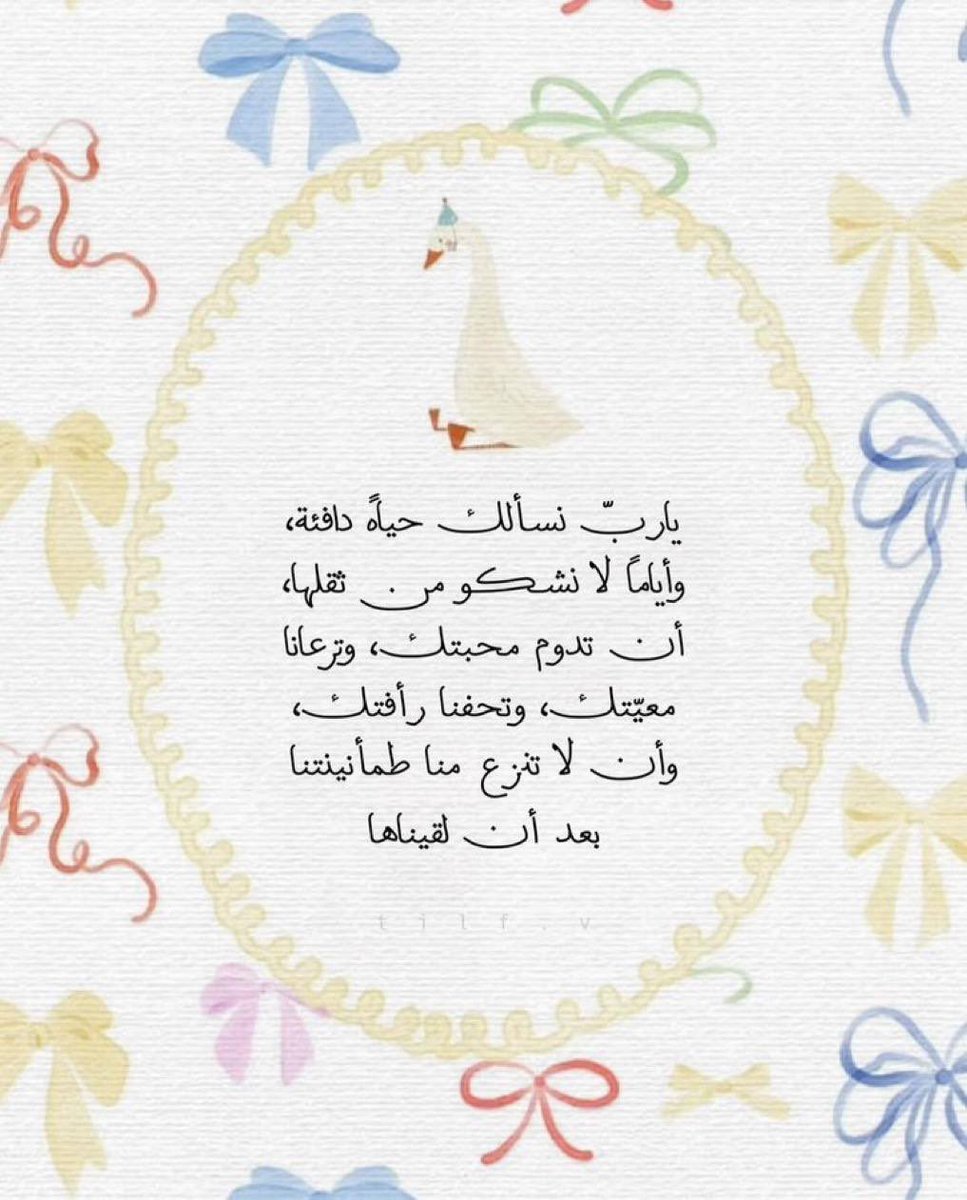 ياربّ نسألك حياةً دافئة،
وأياماً لا نشكو من ثقلها،
أن تدوم محبتك، وترعانا
معيّتك، وتحفنا رأفتك،
وأن لا تنزع منا طمأنينتنا
بعد أن لقيناها
t i l f . v